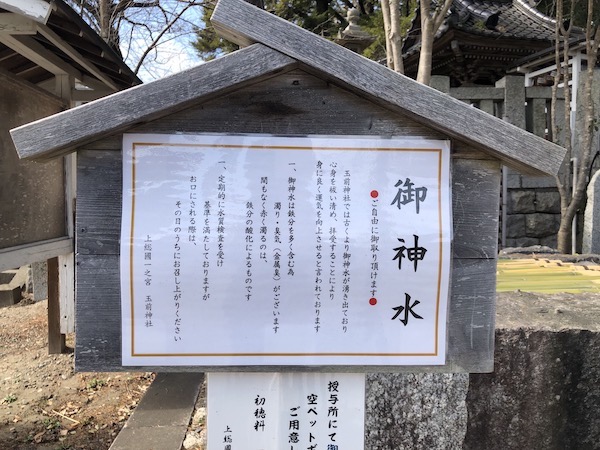 御神水
●ご自由に御取り頂けます●
玉前神社では古くより御神水が湧き出ており
心身を祓い清め、拝受することにより
身に良く運気を向上させると言われております
一、御神水は鉄分を多く含む為
濁り・臭気（金属臭）がございます
間もなく赤く濁るのは、
鉄分の酸化によるものです
一、定期的に水質検査を受け
基準を満たしておりますが
お口にされる際は、
その日のうちにお召し上がりください
上総國一之宮 玉前神社
授与所にて御
空ペットボ
ご用意し
初穂料
上総國